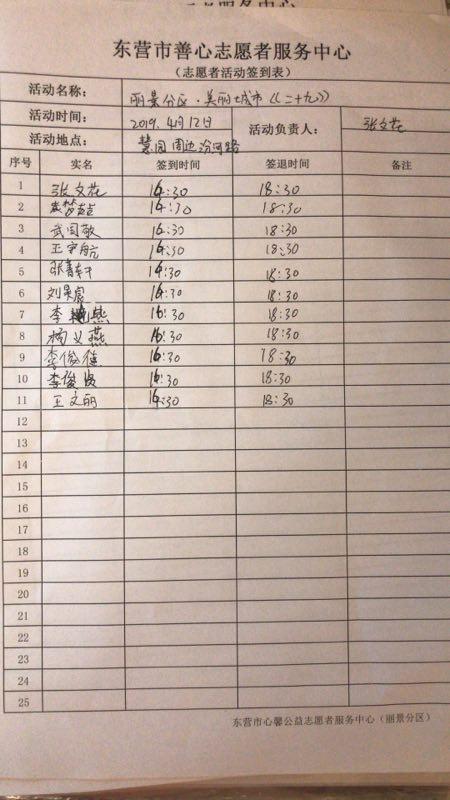 东营市善心志愿者服务中心
（志愿者活动签到表）
活动名称： 丽景分区·美丽城市《二十九》
活动时间： 2019.4月12日 活动负责人： 张文花
活动地点： 慧园周边汾河路
序号 实名 签到时间 签退时间 备注
1 张文花 16:30 18:30
2 16:30 18:30
3 武国敏 16:30 18:30
4 王宇航 16:30 18:30
5 16:30 18:30
6 刘果宸 16:30 18:30
7 李 燕 16:30 18:30
8 杨义燕 16:30 18:30
9 李俊佳 16:30 18:30
10 李俊贤 16:30 18:30
11 王文丽 16:30 18:30
12
13
14
15
16
17
18
19
20
21
22
23
24
25
东营市心馨公益志愿者服务中心（丽景分区）